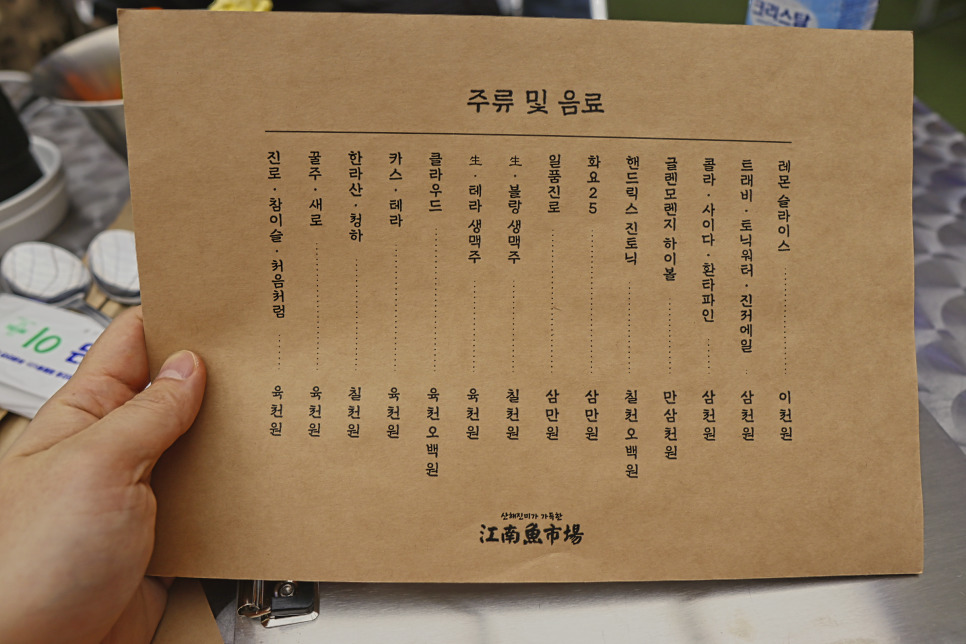 크리스탈
주류 및 음료
진로·참이슬·처음처럼 육천원
꿀주·새로 육천원
한라산·청하 칠천원
카스·테라 육천원
클라우드 육천오백원
生·테라 생맥주 육천원
生·블랑 생맥주 칠천원
일품진로 삼만원
화요25 삼만원
핸드릭스 진토닉 칠천오백원
글렌모렌지 하이볼 만삼천원
콜라·사이다·환타파인 삼천원
트래비·토닉워터·진저에일 삼천원
레몬 슬라이스 이천원
산해진미가 가득한
江南魚市場